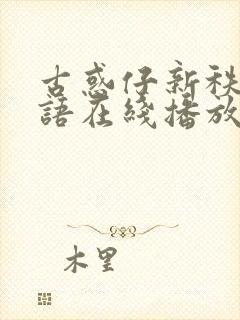 古惑仔新秩
語在綫播放
木里